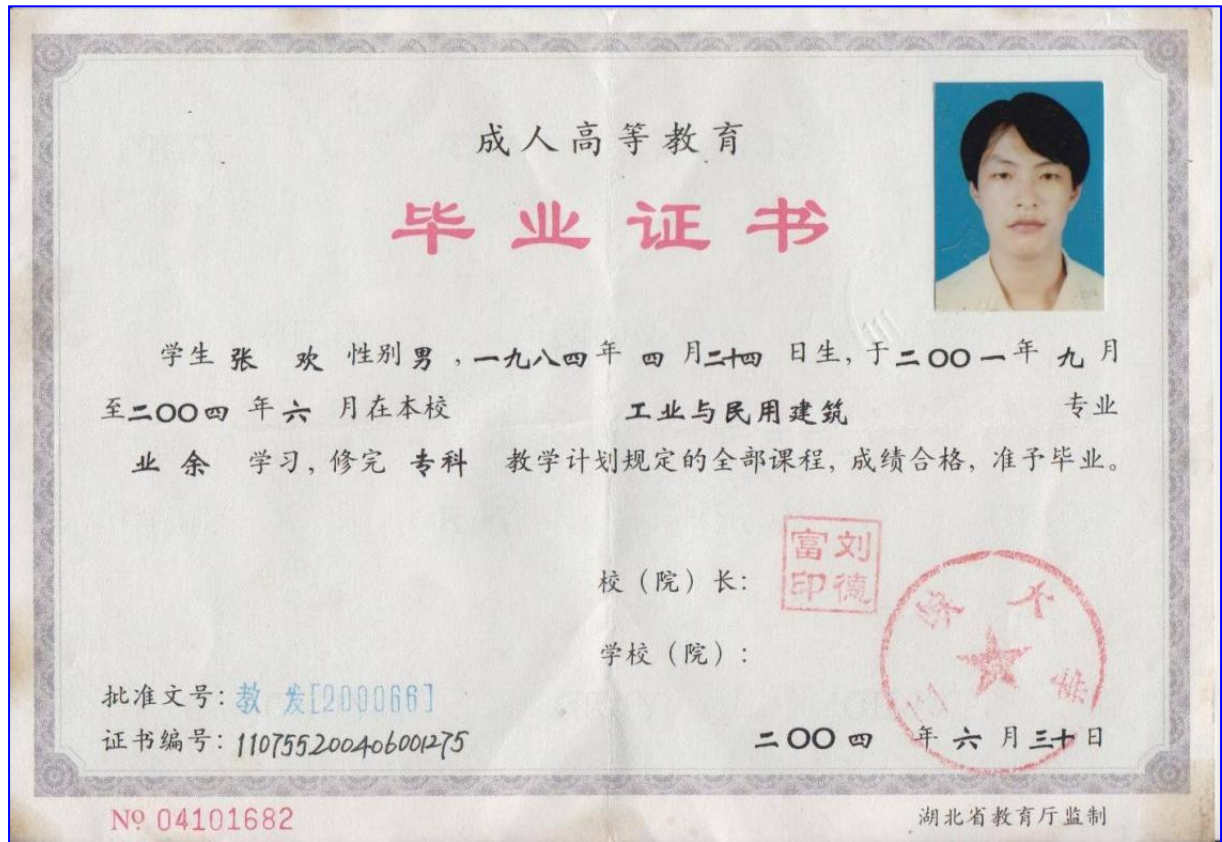 成人高等教育
毕业证书
学生 张 欢 性别 男 ,一九八四年 四 月二十四 日生, 于二〇〇一年 九 月
至二〇〇四 年 六 月在本校 工业与民用建筑 专业
业 余 学习, 修完 专科 教学计划规定的全部课程, 成绩合格, 准予毕业。
富刘
印德
校（院）长:
三峡大学
学校（院）:
批准文号: 教 发[200066]
证书编号: 110755200406001275
二〇〇四 年 六 月 三十 日
Nº 04101682
湖北省教育厅监制